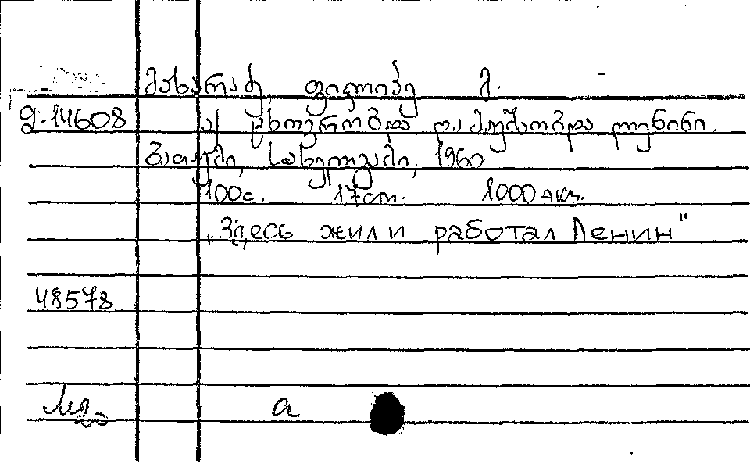 მახარაძე ფილიპე მ.
ფ.14608 აქ ცხოვრობდა და მუშაობდა ლენინი.
ბათუმი, სახელგამი, 1960
100с. 17cm. 1000 экз.
„Здесь жил и работал Ленин"
48578
a